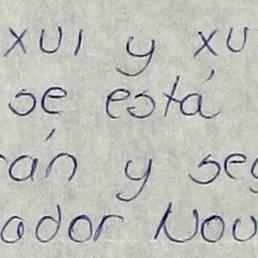 xui y xu
se está
rán y seg
ador Nou